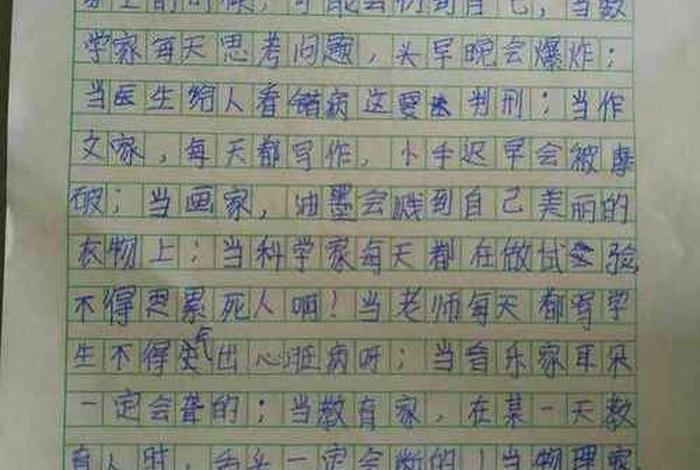 上的时候，可能会切到自己，当数
学家每天思考问题，头早晚会爆炸；
当医生给人看错病这要判刑；当作
文家，每天都写作，小手迟早会被摩
破；当画家，油墨会溅到自己美丽的
衣物上；当科学家每天都在做试验
不得要累死人啊！当老师每天都骂学
生不得气出心脏病呀；当音乐家耳朵
一定会聋的；当教育家，在某一天教
育人时，舌头一定会断的！当物理家